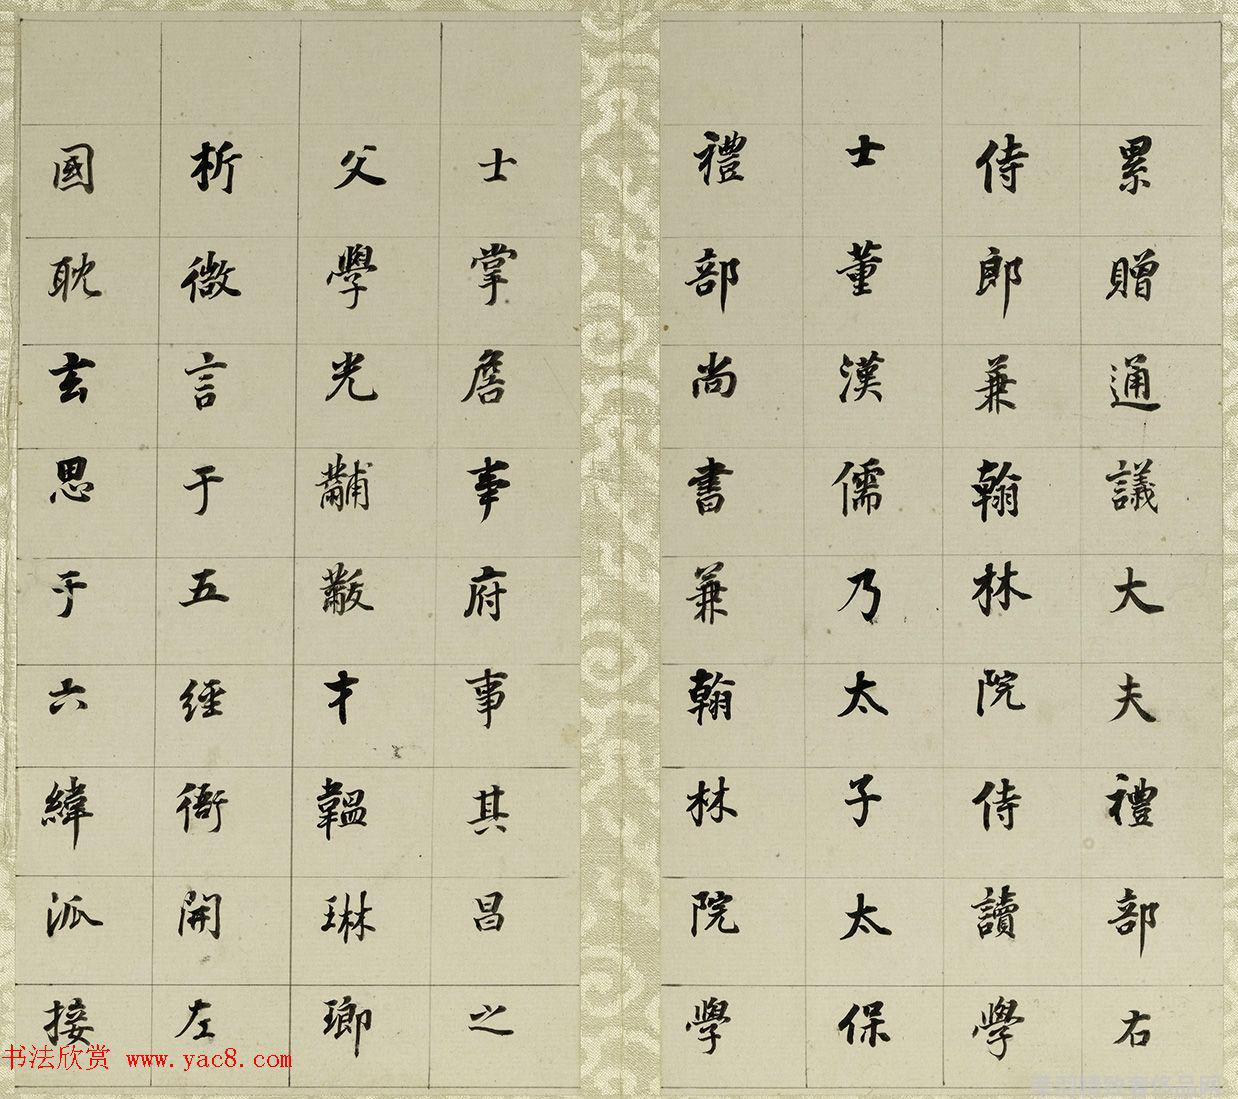 累贈通議大夫禮部右
侍郎兼翰林院侍讀學
士董漢儒乃太子太保
禮部尚書兼翰林院學
士掌詹事府事其昌之
父學光黼黻才韞琳瑯
析微言于五經衜開左
國耽玄思于六緯派接
书法欣赏 www.yac8.com